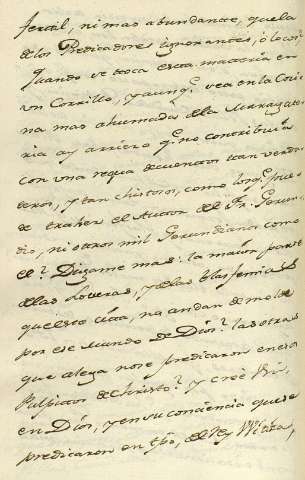 fertil, ni mas abundante, que la
de los Predicadores ignorantes, ó locos?
Quando se toca esta materia en
un Corrillo, y aunq.e sea en la Coci
na mas ahumada de la Maragate
ria ay arriero q.e no contribuia
con una requa de cuentos tan verda
deros, y tan chistosos, como los q.e
de traher el Autor del Fr. Gerun
dio, ni otros mil Gerundianos como
el? Digame mas: la maior parte
de las Loveras, y de las blasfemias
que esto cita, no andan de molde
por ese Mundo de Dios? las otras
que alega no se predicaron en esos
Pulpitos de Christo? y cree Vm.
en Dios, y en su conciencia que se
predicaron en tpõ, del Rey Witiza,